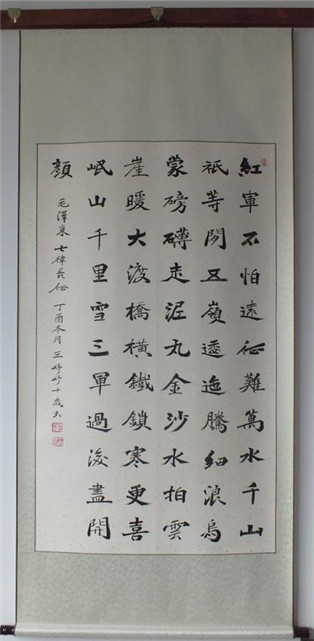 紅軍不怕遠征難萬水千山
祇等閑五嶺逶迤騰細浪烏
蒙磅礴走泥丸金沙水拍雲
崖暖大渡橋橫鐵鎖寒更喜
岷山千里雪三軍過後盡開
顏
毛澤東七律長征丁酉冬月王婷婷十歲書